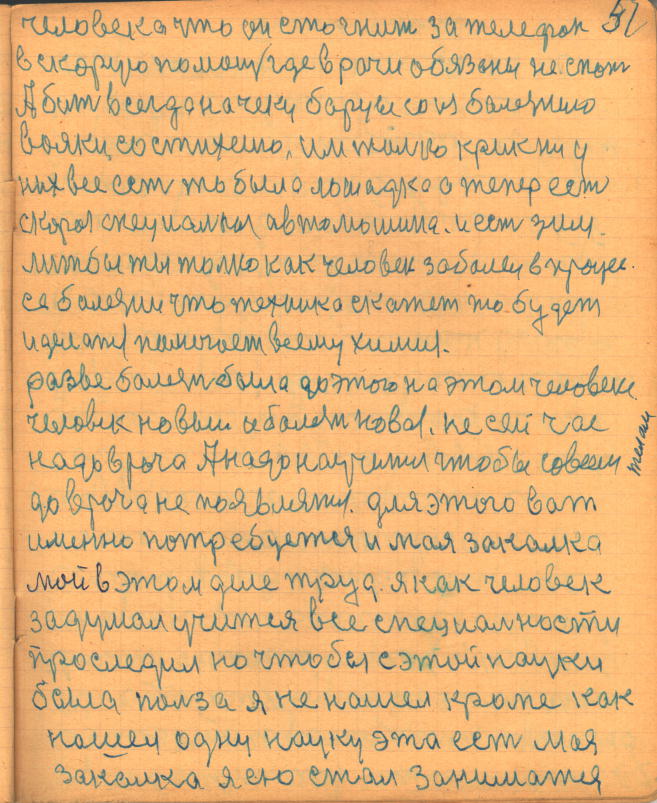 51
человека что он стогнит за телефон
в скорую помощ где врачи обязаны не спат
А быт всегда на чеку борутсоя с болезнию
вояки со стихею, им толко крикни у
них все ест то была лошадка а тепер ест
скорая специалная автомашина. и ест зим.
литбы ты толко как человек заболеи в процес.
се болезни что техника скажет то будет
и делат помогает всему химия.
разве болезн была до этого на этом человеке.
человек новыи и болезн новая. не сеи час
надо врача А надо научится чтобы совсем
до врача не появлятся. для этого вам
телам
именно потребуется и мая закалка
мой в этом деле труд. я как человек
задумал учится все специалности
проследил но чтобы с этой науки
была полза я не нашел кроме как
нашел одну науку эта ест моя
закалка я ею стал заниматся